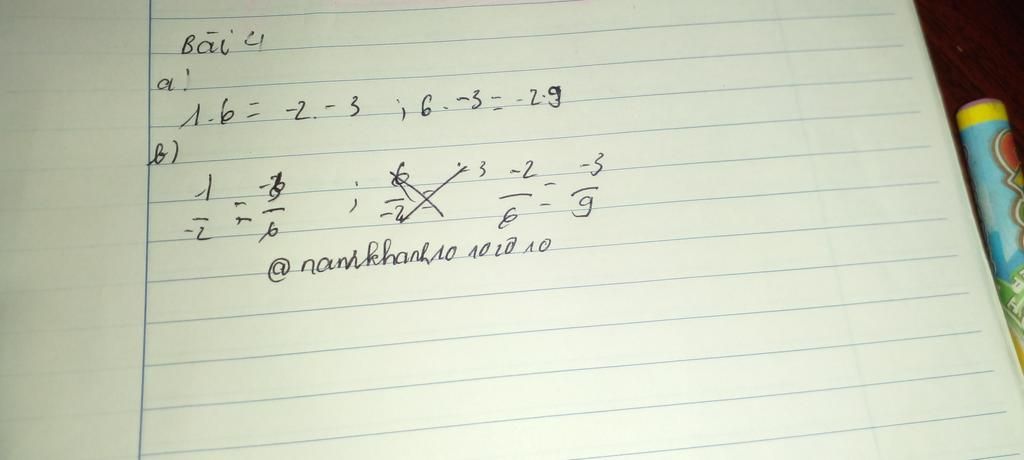 Bài 4
a)
1.6 = -2.-3 ; 6.-3 = -2.9
b)
1/-2 = -3/6 ; -2/6 = -3/9
@namkhanh10102010